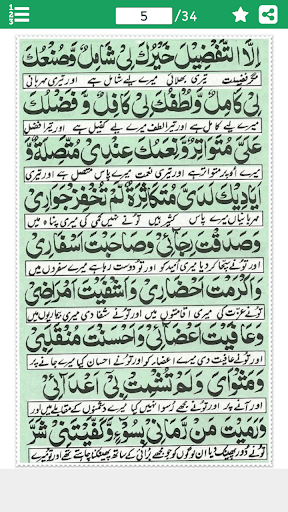 5 /34
اِلَّا التَّفْضِيْلَ خَيْرُكَ لِيْ شَامِلٌ وَّصُنْعُكَ
مگر فضیلت تیری بھلائی میرے لیے شامل ہے اور تیری مہربانی
لِيْ كَامِلٌ وَّلُطْفُكَ لِيْ كَافِلٌ وَّفَضْلُكَ
میرے لیے کامل ہے اور تیرا لطف میرے لیے کفیل ہے اور تیرا فضل
عَلَيَّ مُتَوَاتِرٌ وَّنِعَمُكَ عِنْدِيْ مُتَّصِلَةٌ وَّ
میرے اوپر متواتر ہے اور تیری نعمت میرے پاس متصل ہے اور تیری
اَيَادِيْكَ لَدَيَّ مُتَكَاثِرَةٌ لَمْ تُخْفِرْ جِوَارِيْ
مہربانیاں میرے پاس کثیر ہیں تونے کمی کی میری پناہ میں
وَصَدَّقْتَ رَجَائِيْ وَصَاحَبْتَ اَسْفَارِيْ
اور تونے سچا کر دیا میری امید کو اور تو دوست رہا ہے میرے سفروں میں
وَاَكْرَمْتَ اَحْضَارِيْ وَاَشْفَيْتَ اَمْرَاضِيْ
اور تونے عزت کی میری اقامتوں میں اور تونے شفا دی میری بیماریوں میں
وَعَافَيْتَ اَعْضَائِيْ وَاَحْسَنْتَ مُنْقَلَبِيْ
اور تونے عافیت دی میرے اعضاء کو اور تونے احسان کیا میرے جانے پر
وَمَثْوَايَ وَلَمْ تُشْمِتْ بِيْ اَعْدَائِيْ
اور آنے پر اور تونے مجھے رسوا نہیں کیا میرے دشمنوں کے مقابلے میں اور
وَرَمَيْتَ مَنْ رَّمَانِيْ بِسُوْءٍ وَّكَفَيْتَنِيْ شَرَّ
تونے دور پھینک دیا ان لوگوں کو جو مجھے برائی کے ساتھ پھینکنا چاہتے تھے اور تونے